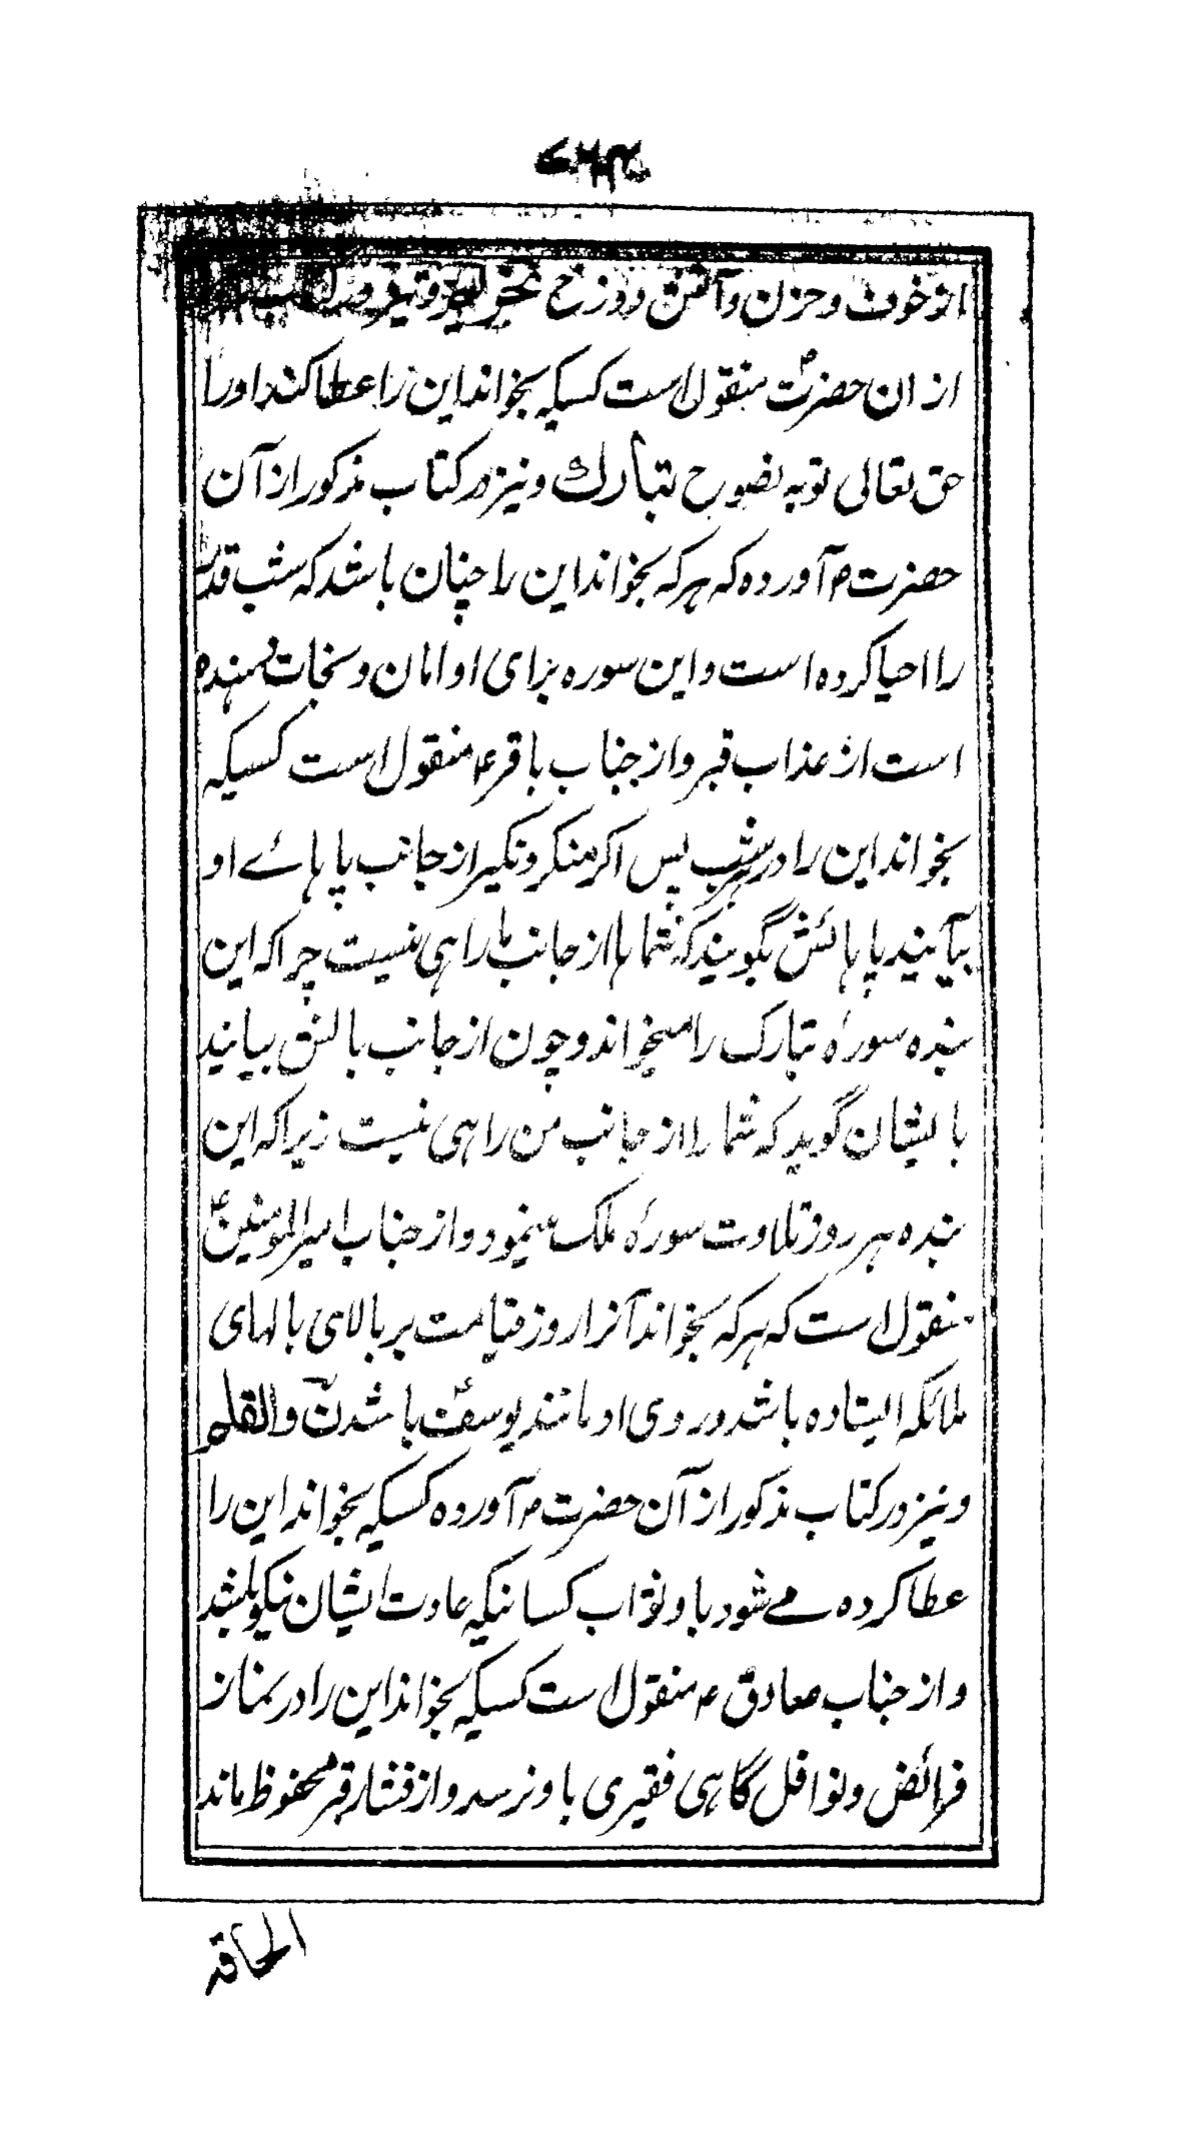 از خوف و حزن و آتش دوزخ
از ان حضرت ص منقول است کسیکه بخواند این را عطا کند او را
حق تعالی توبه نصوح تبارك و نیز در کتاب مذکور از آن
حضرت ص آورده که هر که بخواند این را چنان باشد که شب قدر
را احیا کرده است و این سوره برای او امان و نجات دهنده
است از عذاب قبر و از جناب باقر ع منقول است کسیکه
بخواند این را در شب پس اگر منکر و نکیر از جانب پا هاے او
بیآیند پا هائش گویند که شما را از جانب ما راهی نیست چرا که این
بنده سورهٔ تبارک را میخواند و چون از جانب بالش بیایند
با یشان گوید که شما را از جانب من راهی نیست زیرا که این
بنده هر روز تلاوت سورهٔ ملک مینمود و از جناب امیر المومنین ع
منقول است که هر که بخواند آنرا روز قیامت بر بالای بالهای
ملائکه ایستاده باشد و روی او مانند یوسف ع باشد نٓ والقلم
و نیز در کتاب مذکور از آن حضرت ص آورده کسیکه بخواند این را
عطا کرده مے شود باو ثواب کسانیکه عادت ایشان نیکو باشد
و از جناب صادق ع منقول است کسیکه بخواند این را در نماز
فرائض و نوافل گاهی فقیری باو نرسد و از فشار قبر محفوظ ماند
الحاقه